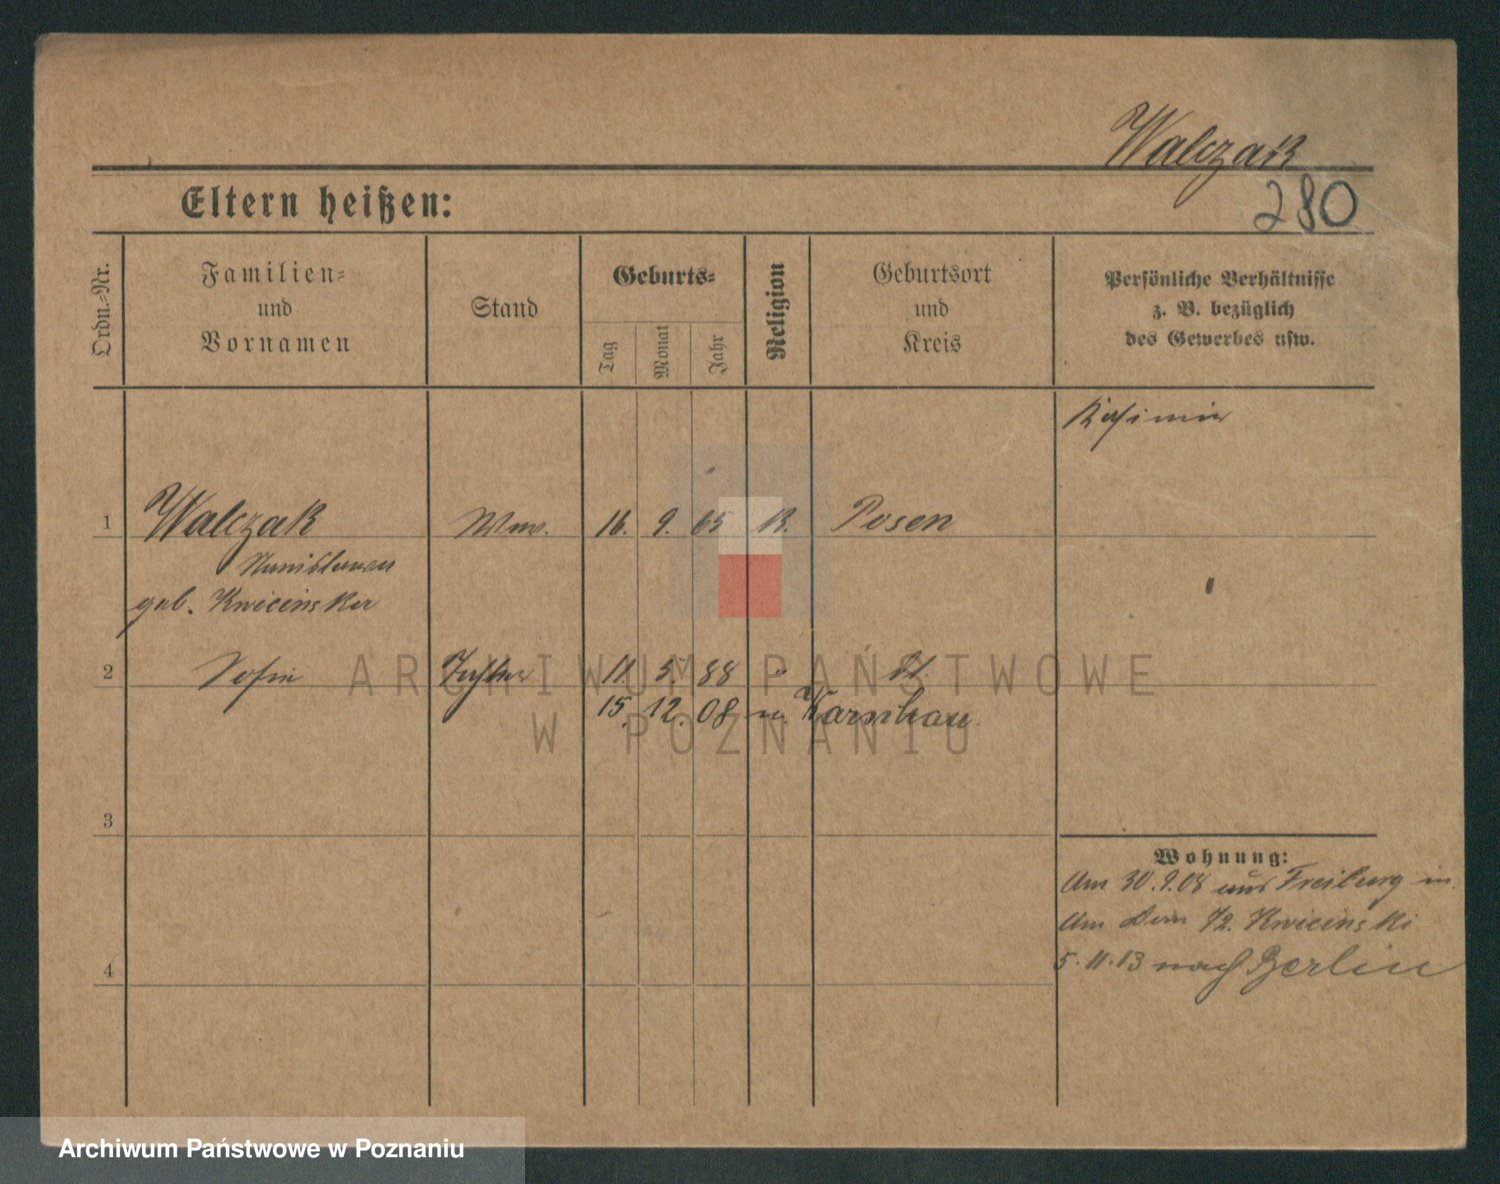 Walczak
280
Eltern heißen:
Ordn.-Nr.
Familien-
und
Vornamen
Stand
Geburts-
Tag
Monat
Jahr
Religion
Geburtsort
und
Kreis
Persönliche Verhältnisse
z. B. bezüglich
des Gewerbes usw.
Kasimir
1 Walczak Wwe. 16. 9. 65 K. Posen
Stanislawa
geb. Kwicinska
2 Sofie Tochter 11. 5. 88 " dt.
15. 12. 08 n.
3
Wohnung:
Am 30.9.08 aus Freiburg in
Am Dom 12. Kwicinski
4
5.11.13 nach Berlin
ARCHIWUM PAŃSTWOWE
W POZNANIU
Archiwum Państwowe w Poznaniu